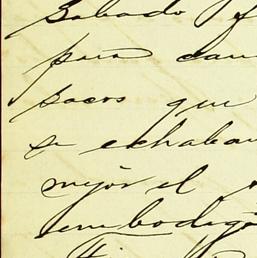 Sabado y
para cam
sacos que
se echaban
mejor el
embodego